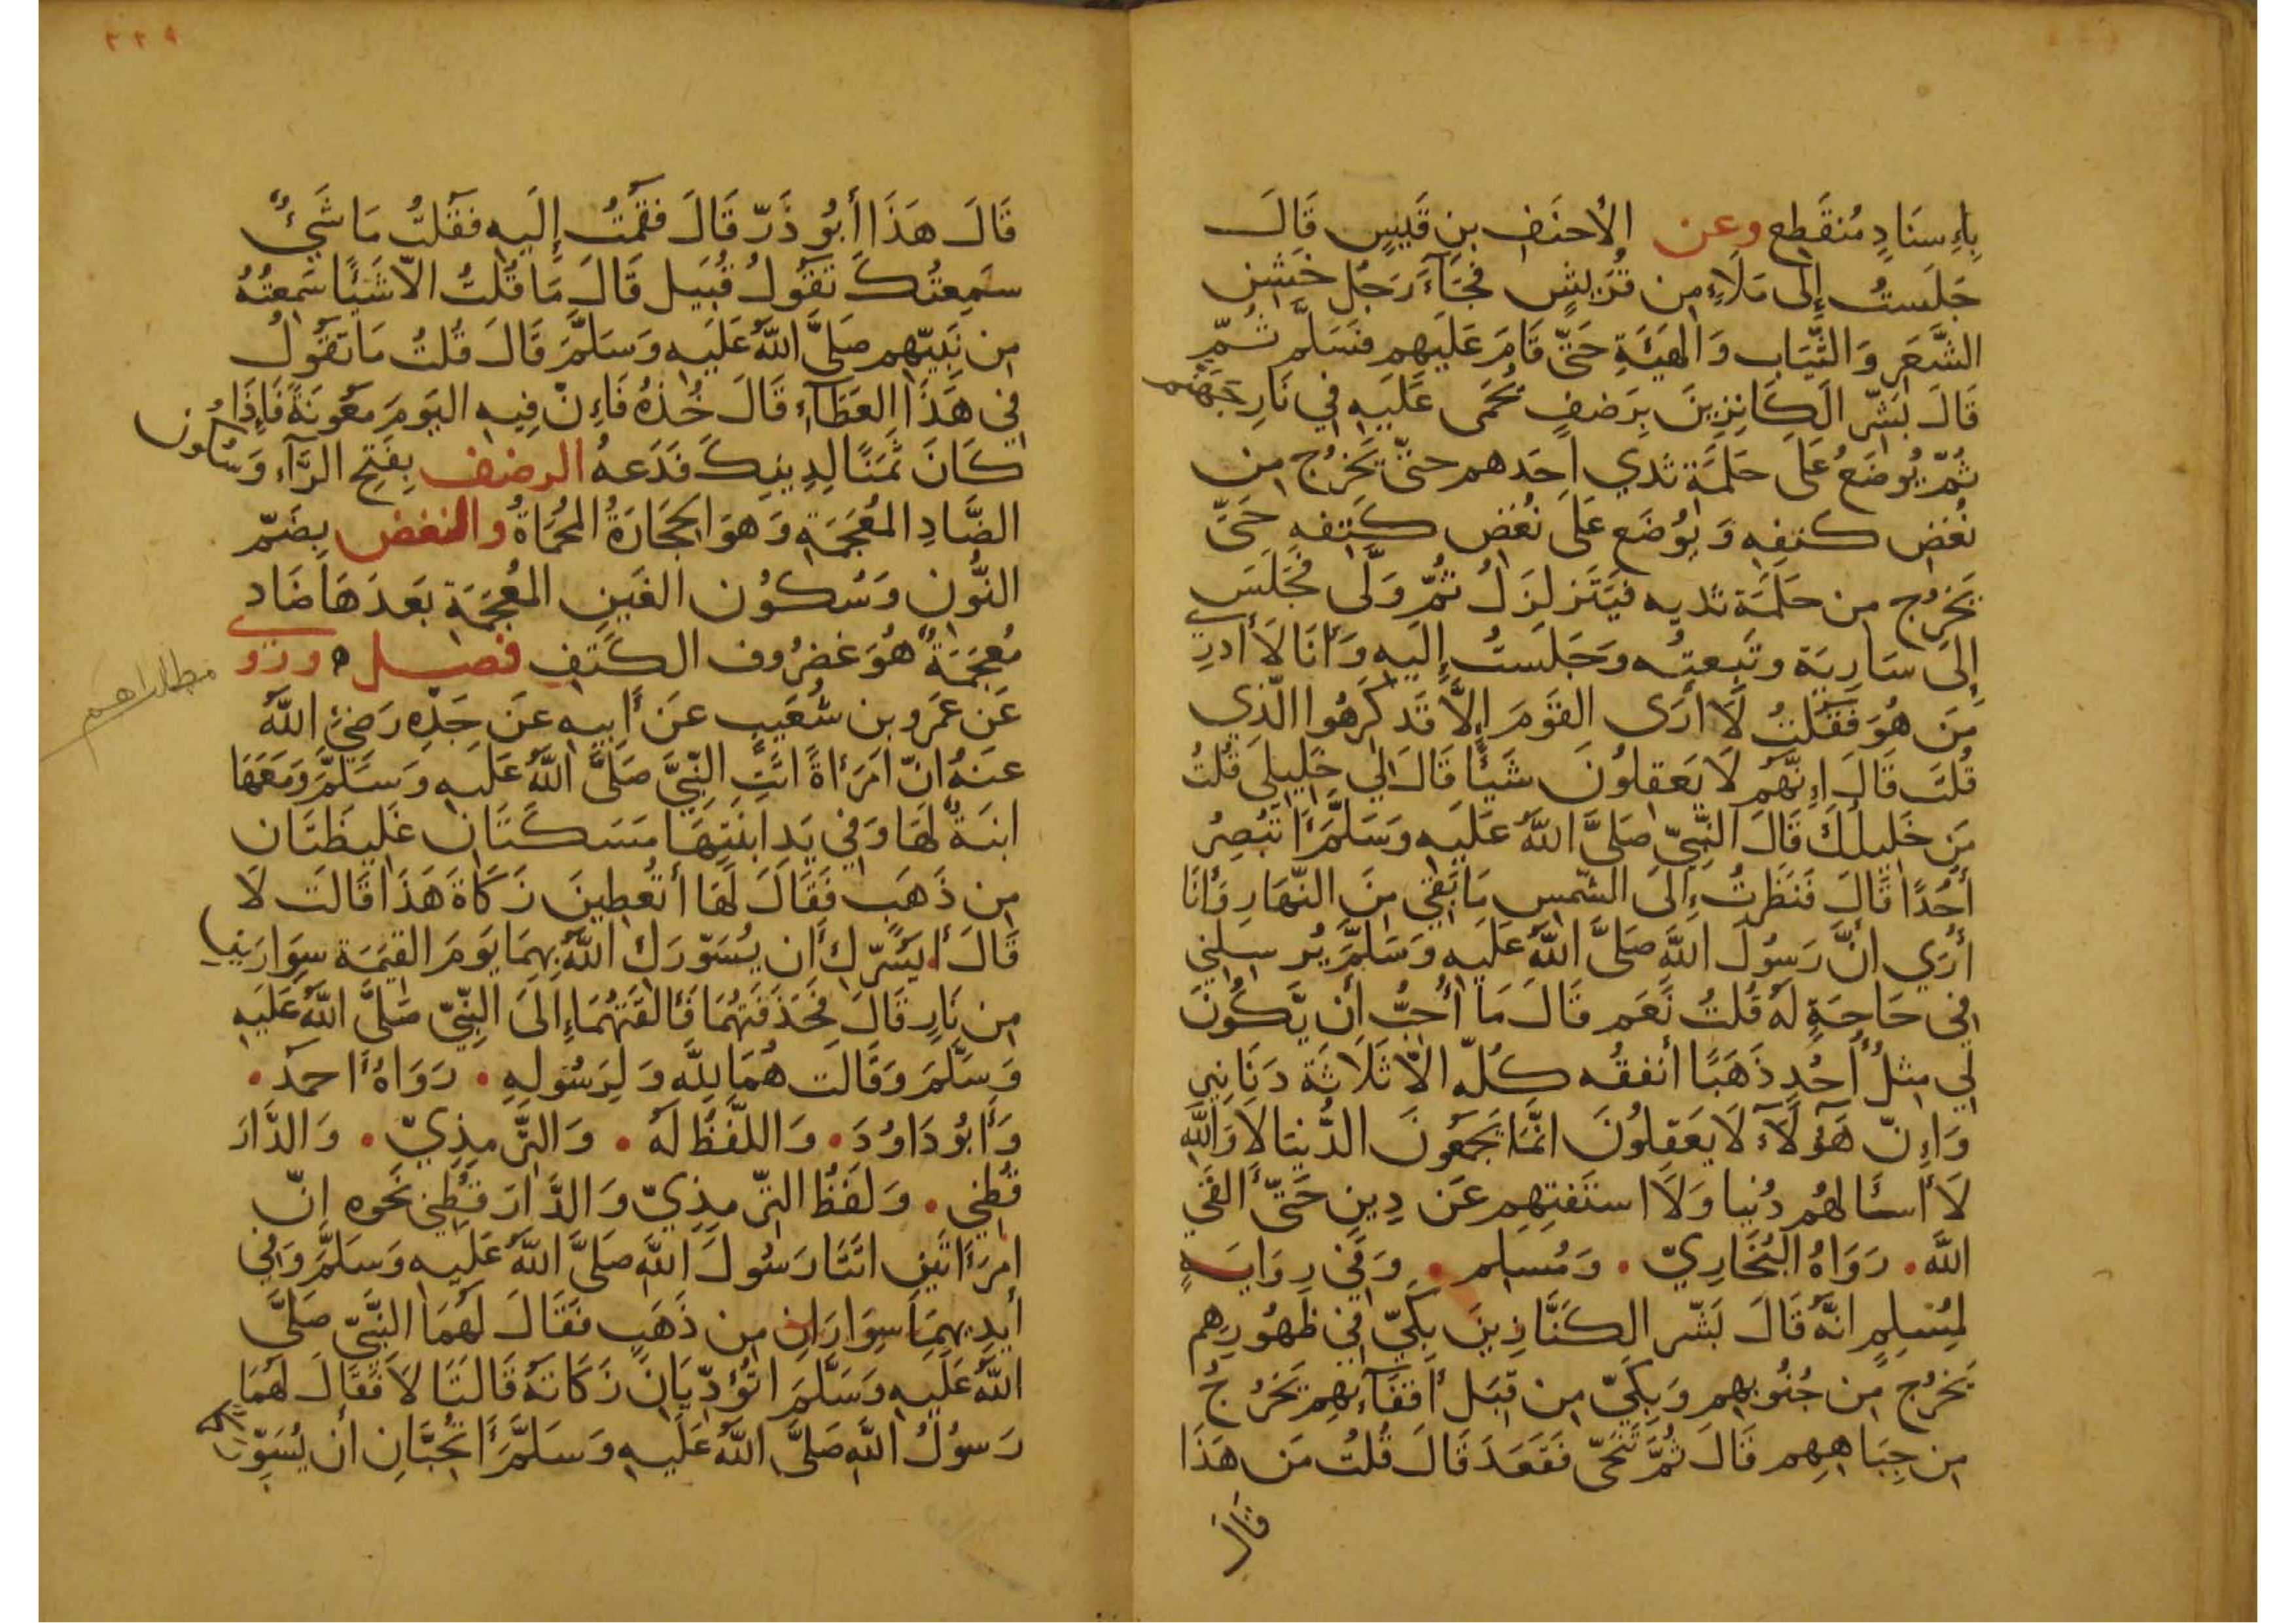 بِإِسنَادٍ مُنقَطِعٍ وعن الأحنَفِ بنِ قَيسٍ قَالَ
جَلَستُ إِلَى مَلَاءٍ مِن قُرَيشٍ فَجَآءَ رَجُل خَشِن
الشَّعَرِ وَالثِّيَابِ وَالهَيئَةِ حَتَّى قَامَ عَلَيهِم فَسَلَّمَ ثُمّ
قَالَ بَشِّرِ الكَانِزِينَ بِرَضفٍ يُحمَى عَلَيهِ فِي نَارِ جَهَنَّم
ثُمّ يُوضَعُ عَلَى حَلَمَةِ ثدي احَدهم حتىّ يَخرُج مِن
نُغضِ كتفِهِ وَيُوضَع عَلَى نُغض كَتِفِهِ حَتَّى
يَخرُج مِن حَلَمَةِ ثديه فَيَتَزلزَلُ ثُمّ وَلَّى فَجَلَسَ
إِلَى سَارِيَة وتَبِعتُه وَجَلَستُ إِلَيهِ وَأنَا لَا أدرِي
مَن هُوَ فَقُلتُ لَا أرَى القَومَ إِلَّا قَد كَرِهُوا الّذِي
قُلتَ قَالَ إِنَّهُم لَا يَعقِلُونَ شَيئًا قَالَ لِي خَلِيلِى قُلتُ
مَن خَلِيلُكَ قَالَ النَّبِيّ صَلَّى اللَّهُ عَلَيهِ وَسَلَّمَ أتُبصِرُ
أُحُدًا قَالَ فَنَظَرتُ إِلَى الشّمسِ مَا بَقِيَ مِنَ النّهَارِ وَأنَا
أُرَي انَّ رَسُولَ اللَّهِ صَلَّى اللَّهُ عَلَيهِ وَسَلَّمَ يُرسِلني
في حَاجَةٍ لَهُ قُلتُ نَعَم قَالَ مَا أُحِبُّ أن يَّكُونَ
لِي مِثلُ أُحُدٍ ذَهَبًا أُنفِقُه كُلّه الاّ ثَلاَثَة دَنَانِير
وَإِنّ هَؤلَآء لَا يَعقِلُونَ انّمَا يَجمَعُونَ الدُّنيَا لَا وَاللهِ
لَا أسئَالهُم دُنيا وَلَا استَفتِهِم عَن دِينٍ حَتّى ألقَي
اللَّه. رَوَاهُ البُخَارِيّ. وَمُسلِم. وَفي رِوَايَةٍ
لِمُسلِمٍ انَّهُ قَالَ بَشّر الكَنَّازِينَ بِكَيّ في ظُهُورِهِم
يَخرُج مِن جُنُوبِهِم وَبِكَيّ مِن قِبَلِ أقفَآئِهِم يَخرُجُ
مِن جِبَاهِهِم قَالَ ثُمَّ تَنَحَّى فَقَعَدَ قَالَ قُلتُ مَن هَذَا
قَالَ
٣٣٩
قَالَ هَذَا أبُو ذَرّ قَالَ فَقُمتُ إِلَيهِ فَقُلتُ مَا شَيئٌ
سَمِعتُكَ تَقُولُ قُبَيلَ قَالَ مَا قُلتُ الاّ شَيئًا سَمِعتُهُ
مِن نَبِيّهِم صَلَّى اللَّهُ عَلَيهِ وَسَلَّمَ قَالَ قُلتُ مَا تَقُولُ
فِي هَذَا العَطَآءِ قَالَ خُذهُ فَإِنّ فِيهِ اليَومَ مَعُونَةً فَإِذَا
كَانَ ثَمَنًا لِدِينِكَ فَدَعهُ الرضف بِفَتحِ الرَّآءِ وَسُكُون
الضَّادِ المُعجَمَةِ وَهوَ الحِجَارَةُ المُحمَاةُ والنغض بِضَمّ
النُّونِ وَسُكُونِ الغَينِ المُعجَمَة بَعدَهَا ضَاد
مُعجَمَةٌ هُوَ غضرُوف الكَتِفِ فصل ه ورُوي
عَن عَمرو بن شُعَيبٍ عَن أبِيهِ عَن جَدِّهِ رَضِيَ اللَّهُ
عَنهُ انّ امرَأةً اتَتِ النّبِيَّ صَلَّى اللَّهُ عَلَيهِ وَسَلَّمَ وَمَعَهَا
ابنَةٌ لَهَا وَفي يَدِ ابنَتِهَا مَسَكَتَان غَلِيظَتَان
مِن ذَهَبٍ فَقَالَ لَهَا أتُعطِينَ زَكَاةَ هَذَا قَالَت لَا
قَالَ أيَسُرّكِ أن يُسَوّرَكِ اللَّهُ بِهِمَا يَومَ القِيمَةِ سِوَارَينِ
مِن نَارٍ قَالَ فَحَذَفَتهُمَا فَألقَتهُمَا إِلَى النّبِيّ صَلَّى اللَّهُ عَلَيهِ
وَسَلَّمَ وَقَالَت هُمَا لِلَّهِ وَلِرَسُولِهِ. رَوَاهُ احمَد.
وَأبُو دَاوُدَ. وَاللَّفظُ لَهُ. وَالتّرمِذِيّ. وَالدَّارَ
قُطنِي. وَلَفظُ التّرمِذِيّ وَالدَّارَقُطنِي نَحوه انّ
امرَأتَينِ اتَتَا رَسُولَ اللَّهِ صَلَّى اللَّهُ عَلَيهِ وَسَلَّمَ وَفي
أيدِيهِمَا سِوَارَانِ مِن ذَهَبٍ فَقَالَ لَهُمَا النَّبِيّ صَلَّى
اللَّهُ عَلَيهِ وَسَلَّمَ اتُؤَدِّيَانِ زَكَاتَهُ قَالَتَا لَا فَقَالَ لَهُمَا
رَسُولُ اللَّهِ صَلَّى اللَّهُ عَلَيهِ وَسَلَّمَ أتُحِبَّانِ أن يُسَوّركما